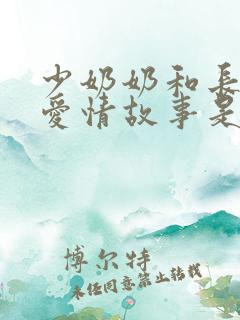 少奶奶和長
愛情故事是
博尔特
未经同意禁止转载